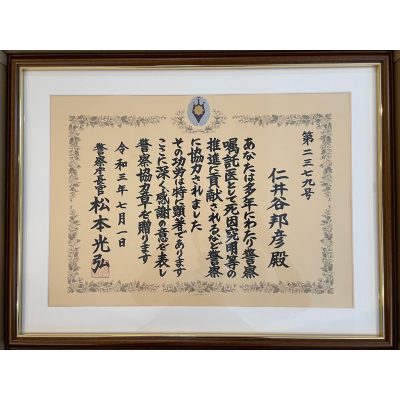 第二三七九号
仁井谷邦彦殿
あなたは多年にわたり警察
嘱託医として死因究明等の
推進に貢献されるなど警察
に協力されました
その功労は特に顕著であります
ここに深く感謝の意を表し
警察協力章を贈ります
令和三年七月一日
警察庁長官 松本光弘